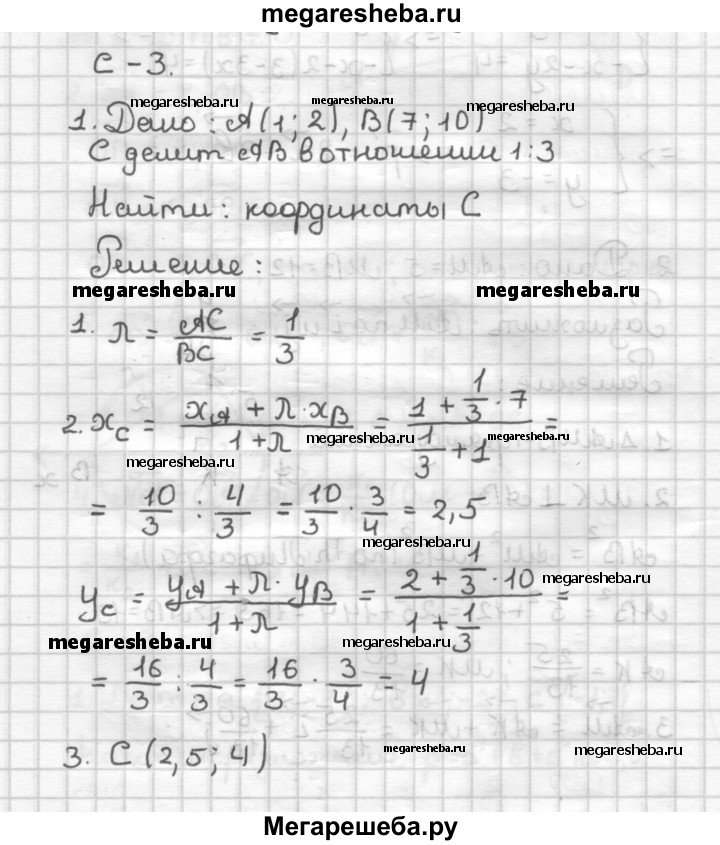 megaresheba.ru
С-3.
megaresheba.ru megaresheba.ru megaresheba.ru
1. Дано: A(1; 2), B(7; 10)
С делит AB в отношении 1:3
Найти: координаты С
Решение:
megaresheba.ru megaresheba.ru
1. Л = AC/BC = 1/3
2. x_C = (x_A + Л·x_B)/(1+Л) = (1 + 1/3·7)/(1/3 + 1) =
megaresheba.ru megaresheba.ru
megaresheba.ru
= 10/3 : 4/3 = 10/3 · 3/4 = 2,5
megaresheba.ru
y_C = (y_A + Л·y_B)/(1+Л) = (2 + 1/3·10)/(1 + 1/3) =
megaresheba.ru
megaresheba.ru megaresheba.ru
= 16/3 : 4/3 = 16/3 · 3/4 = 4
3. С(2,5; 4)
megaresheba.ru megaresheba.ru
Мегарешеба.ру